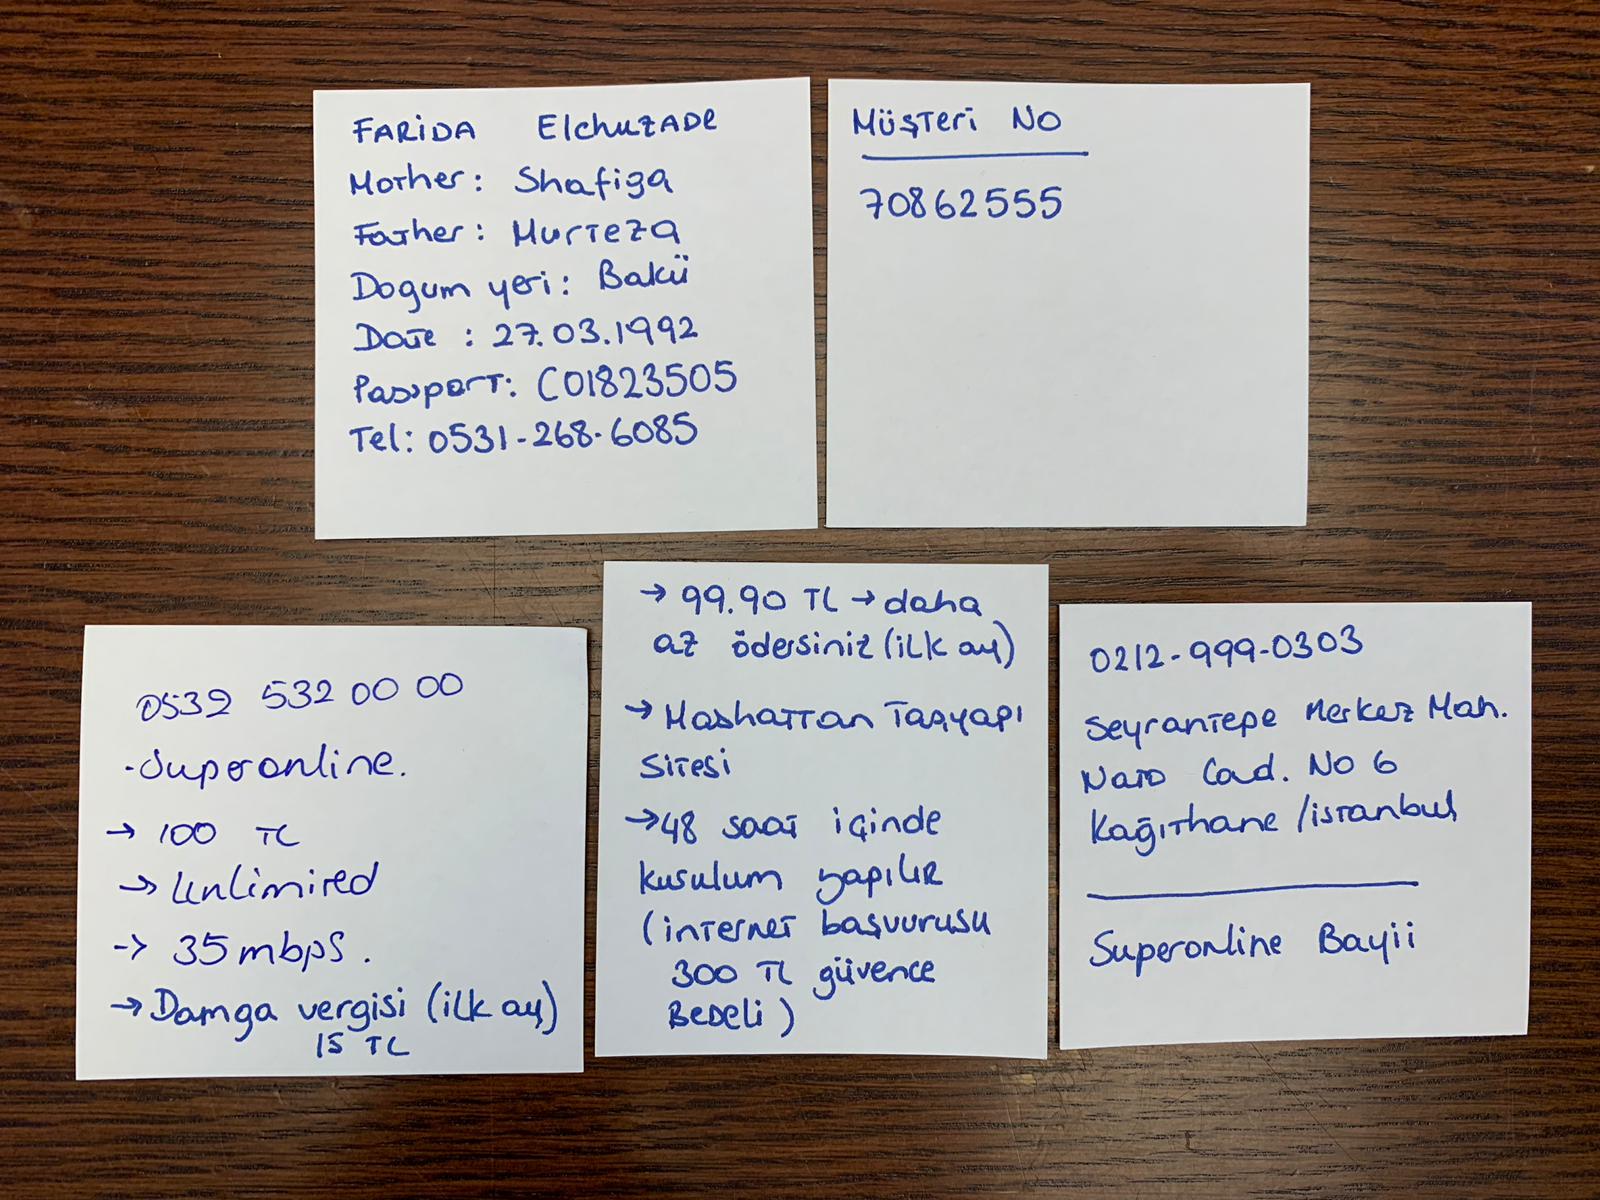 FARIDA Elchuzade
Mother: Shafiga
Father: Murteza
Dogum yeri: Bakü
Date : 27.03.1992
Passport: C01823505
Tel: 0531-268-6085
Müşteri No
70862555
0532 532 00 00
-Superonline.
→ 100 TL
→ Unlimited
-> 35 mbps.
→ Damga vergisi (ilk ay)
15 TL
→ 99.90 TL → daha
az ödersiniz (ilk ay)
→ Mashattan Taşyapı
sitesi
→ 48 saat içinde
kusulum yapılır
(internet başvurusu
300 TL güvence
Bedeli)
0212-999-0303
Seyrantepe Merkez Mah.
Nato Cad. No 6
Kağıthane /istanbul
Superonline Bayii